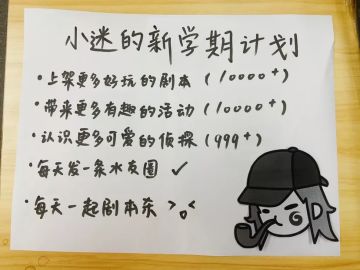 小迷的新学期计划
·上架更多好玩的剧本(10000⁺)
·带来更多有趣的活动(10000⁺)
·认识更多可爱的侦探(999⁺)
·每天发一条水友圈 ✓
·每天一起剧本杀 >。<